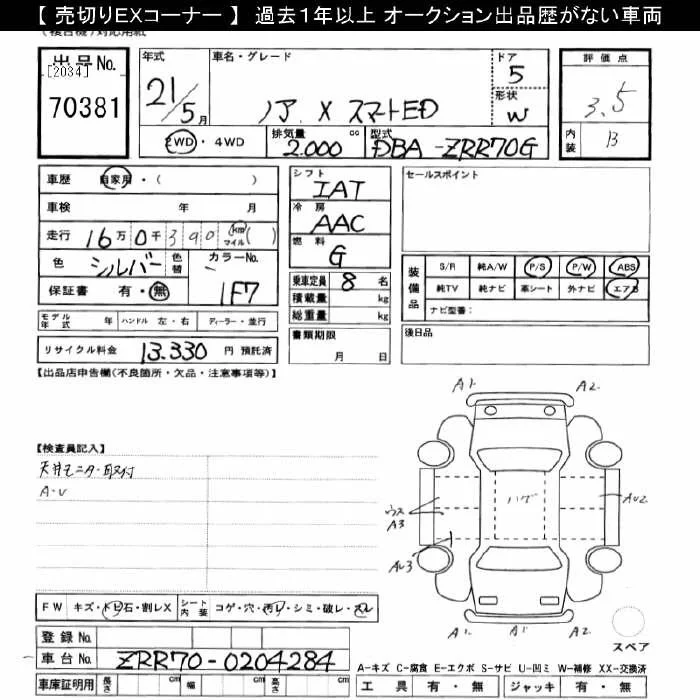 【 売切りEXコーナー 】 過去１年以上 オークション出品歴がない車両
出品No.
[2034]
70381
年式
21/5月
車名・グレード
ノア X スマートED
ドア
5
形状
W
評価点
3.5
内装
B
2WD・4WD
排気量
2.000 cc
型式
DBA-ZRR70G
車歴 自家用・( )
車検 年 月
走行 16万0千390 km マイル( )
色 シルバー 色替 カラーNo. 1F7
保証書 有・無
シフト
IAT
冷房
AAC
燃料
G
乗車定員 8 名
積載量 kg
総重量 kg
書類期限
月 日
セールスポイント
装備品
S/R 純A/W P/S P/W ABS
純TV 純ナビ 革シート 外ナビ エアB
ナビ型番：
後日品
モデル年式 年 ハンドル 左・右 ディーラー・並行
リサイクル料金 13.330 円 預託済
【出品店申告欄(不良個所・欠品・注意事項等)】
【検査員記入】
天井モニター取付
A・U
A1 A2
ハゲ
ウス
A3
AU2
AU3
A1 A1 A2
スペア
FW キズ・トビ石・割レX シート内装 コゲ・穴・汚レ・シミ・破レ・スレ
登録No.
車台No. ZRR70-0204284
車庫証明用 長さ cm 幅 cm 高さ cm
A-キズ C-腐食 E-エクボ S-サビ U-凹ミ W-補修 XX-交換済
工具 有・無 ジャッキ 有・無